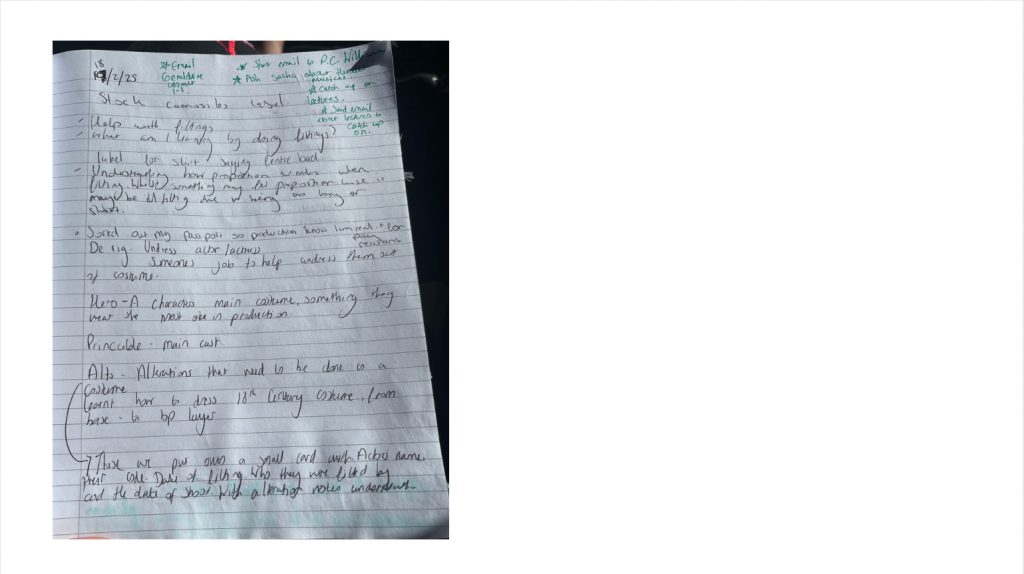 18
/2/25
* Email
Geraldine
1-1
* Start email to P.C.
* Ask Sasha about
* Catch up on
lectures.
* Send email
about lectures to
catch up
on.
Stock
- Help with fittings
- What am I learning by doing fittings?
label for shirt saying centre back
- Understanding how proportion works when
fitting. Whilst something may fit proportion wise it
maybe ill fitting due to being too long or
short.
• Sorted out my passport so production know I am real + for
reasons
De rig - Undress actor/actress
Someones job to help undress them out
of costume.
Hero - A character main costume, something they
wear the most in production.
Princable - main cast
Alts - Alterations that need to be done to a
costume
learnt how to dress 18th Century costume, from
base - to top layer
These are put onto a small card with Actors name,
their role. Date of fitting who they were fitted by
and the date of shoot. With alteration notes underneath.